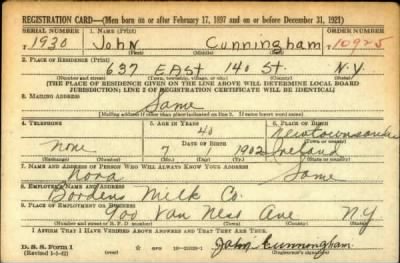 REGISTRATION CARD—(Men born on or after February 17, 1897 and on or before December 31, 1921)
SERIAL NUMBER 1. NAME (Print) ORDER NUMBER
1930 John Cunningham 10925
(First) (Middle) (Last)
2. PLACE OF RESIDENCE (Print)
637 EAST 140 St. N.Y.
(Number and street) (Town, township, village, or city) (County) (State)
[THE PLACE OF RESIDENCE GIVEN ON THE LINE ABOVE WILL DETERMINE LOCAL BOARD
JURISDICTION; LINE 2 OF REGISTRATION CERTIFICATE WILL BE IDENTICAL]
3. MAILING ADDRESS
Same
[Mailing address if other than place indicated on line 2. If same insert word same]
4. TELEPHONE 5. AGE IN YEARS 6. PLACE OF BIRTH
40
DATE OF BIRTH
none 7 1902 Ireland
(Exchange) (Number) (Mo.) (Day) (Yr.)
7. NAME AND ADDRESS OF PERSON WHO WILL ALWAYS KNOW YOUR ADDRESS
Nora Same
8. EMPLOYER'S NAME AND ADDRESS
Bordens Milk Co.
9. PLACE OF EMPLOYMENT OR BUSINESS
900 Van Ness Ave N.Y
(Number and street or R. F. D. number) (Town) (County) (State)
I AFFIRM THAT I HAVE VERIFIED ABOVE ANSWERS AND THAT THEY ARE TRUE.
D. S. S. Form 1
(Revised 1-1-42) John Cunningham
(Registrant's signature)